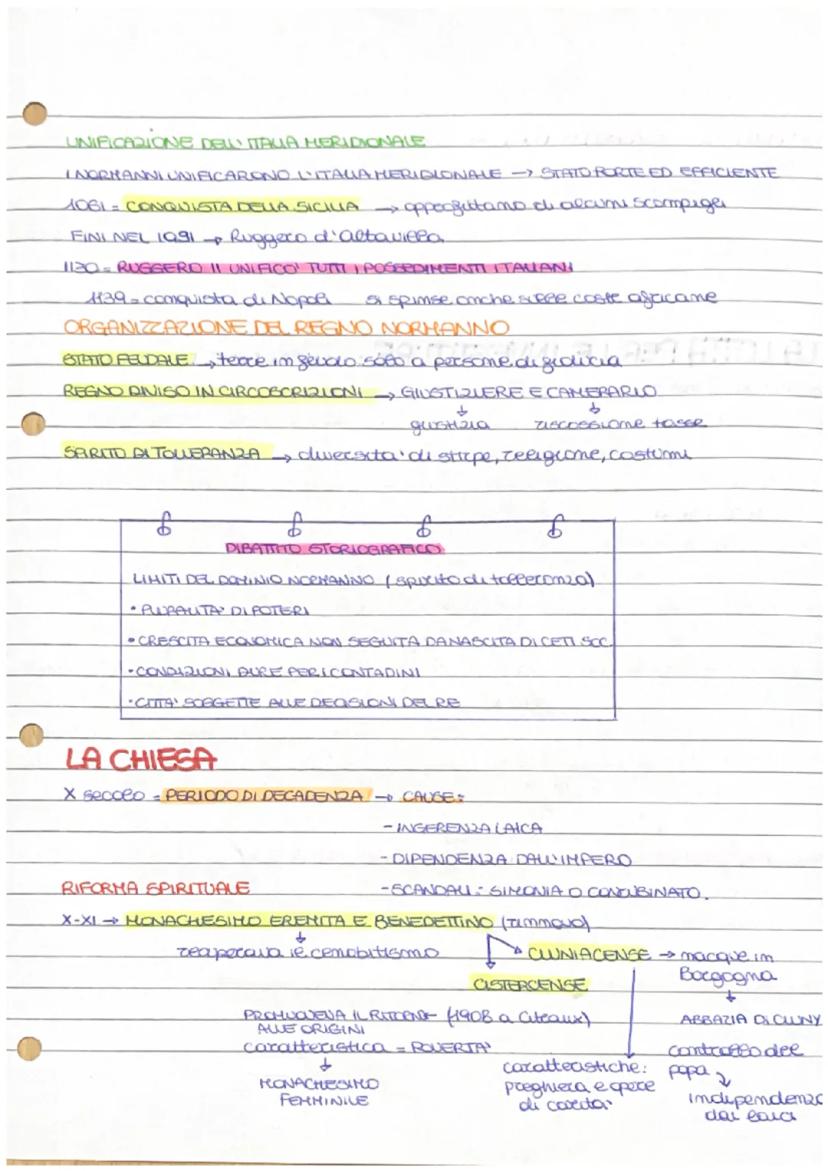 UNIFICAZIONE DELL'ITALIA MERIDIONALE
I NORMANNI UNIFICARONO L'ITALIA MERIDIONALE → STATO FORTE ED EFFICIENTE
1061 = CONQUISTA DELLA SICILIA → approfittano di alcuni scompigli
FINI NEL 1091 → Ruggero d'altavilla
1130 = RUGGERO II UNIFICO' TUTTI I POSSEDIMENTI ITALIANI
1139 = conquista di Napoli si spinse anche sulle coste africane
ORGANIZZAZIONE DEL REGNO NORMANNO
STATO FEUDALE → terre in feudo solo a persone di fiducia
REGNO DIVISO IN CIRCOSCRIZIONI → GIUSTIZIERE E CAMERARIO
↓ ↓
giustizia riscossione tasse
SPIRITO DI TOLLERANZA → diversita' di stirpe, religione, costumi
DIBATTITO STORIOGRAFICO
LIMITI DEL DOMINIO NORMANNO (spirito di tolleranza)
• PLURALITA' DI POTERI
• CRESCITA ECONOMICA NON SEGUITA DA NASCITA DI CETI SOC.
• CONDIZIONI DURE PER I CONTADINI
• CITTA' SOGGETTE ALLE DECISIONI DEL RE
LA CHIESA
X secolo = PERIODO DI DECADENZA → CAUSE:
- INGERENZA LAICA
- DIPENDENZA DALL'IMPERO
RIFORMA SPIRITUALE - SCANDALI: SIMONIA O CONCUBINATO.
X-XI → MONACHESIMO EREMITA E BENEDETTINO (rinnovo)
↓
recuperava il cenobitismo CLUNIACENSE → nacque in
Borgogna
CISTERCENSE ↓
PROMUOVEVA IL RITORNO (1908 a Citeaux) ABBAZIA DI CLUNY
ALLE ORIGINI
caratteristica = POVERTA' controllo del
papa
↓ caratteristiche:
MONACHESIMO preghiera e opere indipendenza
FEMMINILE di carita' dai laici